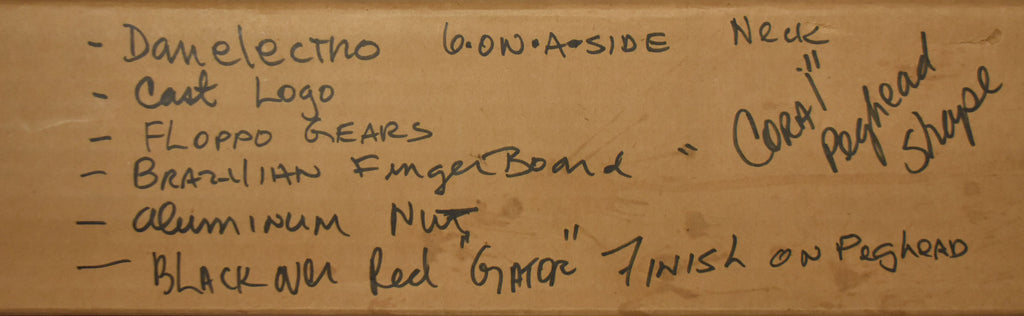 - Danelectro 6·ON·A·SIDE Neck
- Cast Logo
- FLOPPO GEARS
- BRAZILIAN FingerBoard
- aluminum Nut
- BLACK over Red "GATOR" FINISH ON PegHEAD
"CORAl"
Peghead
Shape